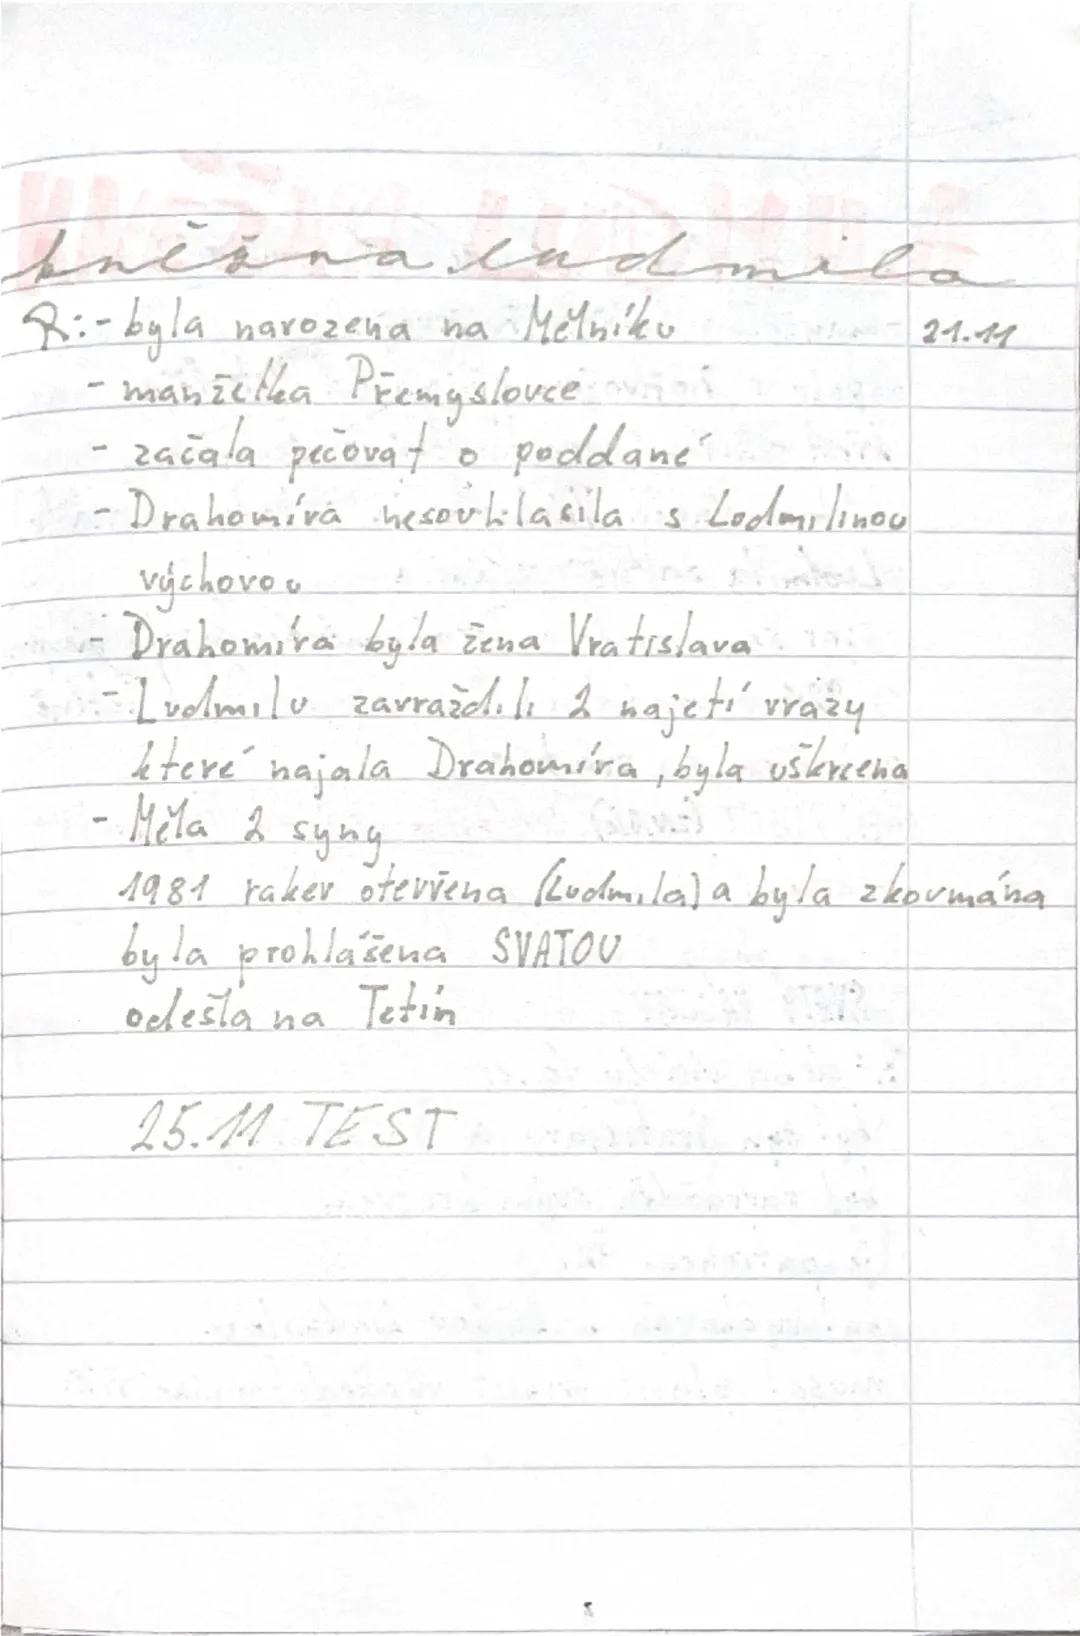 kněžna ludmila
R:- byla narozena na Mělníku 21.11
- manželka Přemyslovce
- začala pečovat o poddané
- Drahomíra nesouhlasila s Ludmilinou
výchovou
- Drahomíra byla žena Vratislava
- Ludmilu zavraždili 2 najetí vrazy
které najala Drahomíra, byla uškrcena
- Měla 2 syny
1981 rakev otevřena (Ludmila) a byla zkoumána
byla prohlášena SVATOU
odešla na Tetín
25.11 TEST